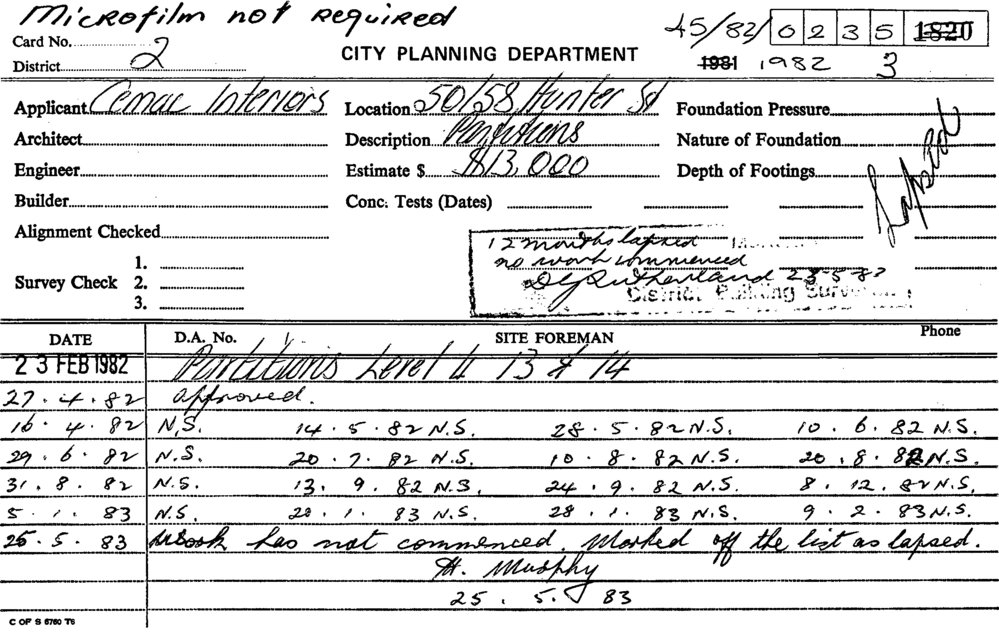 Microfilm not required
45/82/ 0 2 3 5 1820
Card No.
District 2
CITY PLANNING DEPARTMENT
1981 1982 3
Applicant Cemac Interiors Location 50/58 Hunter St Foundation Pressure
Architect Description Partitions Nature of Foundation
Engineer Estimate $ $13,000 Depth of Footings
Lapsed
Builder Conc. Tests (Dates)
Alignment Checked
12 months lapsed
no work commenced
Survey Check 1. 2. 3.
Sutherland
District Building Surveyor
DATE D.A. No. SITE FOREMAN Phone
23 FEB 1982 Partitions Level 11 13 & 14
27.4.82 approved.
16.4.82 N.S. 14.5.82 N.S. 28.5.82 N.S. 10.6.82 N.S.
29.6.82 N.S. 20.7.82 N.S. 10.8.82 N.S. 20.8.82 N.S.
31.8.82 N.S. 13.9.82 N.S. 24.9.82 N.S. 8.12.82 N.S.
5.1.83 N.S. 20.1.83 N.S. 28.1.83 N.S. 9.2.83 N.S.
25.5.83 Work has not commenced. Marked off the list as lapsed.
H. Murphy
25.5.83
C OF S 6760 T6